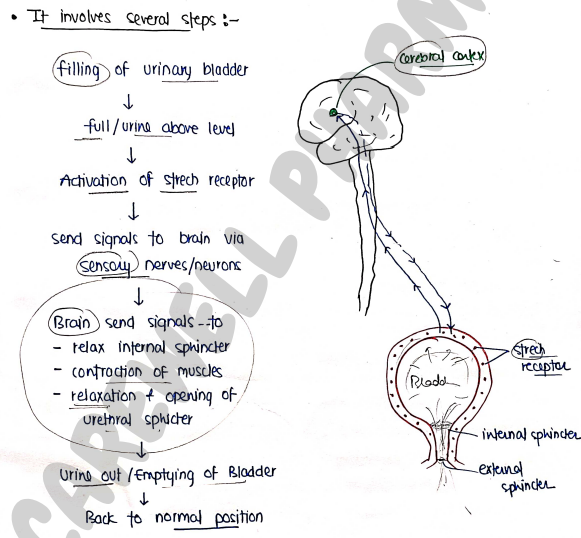 • It involves several steps :-
filling of urinary bladder
↓
full/urine above level
↓
Activation of strech receptor
↓
send signals to brain via
sensory nerves/neurons
↓
Brain send signals -- to
- relax internal sphincter
- contraction of muscles
- relaxation & opening of
urethral sphicter
↓
Urine out /Emptying of Bladder
↓
Back to normal position
cerebral cortex
strech
receptor
Bladder
internal sphincter
external
sphincter
CAREWELL PHARM